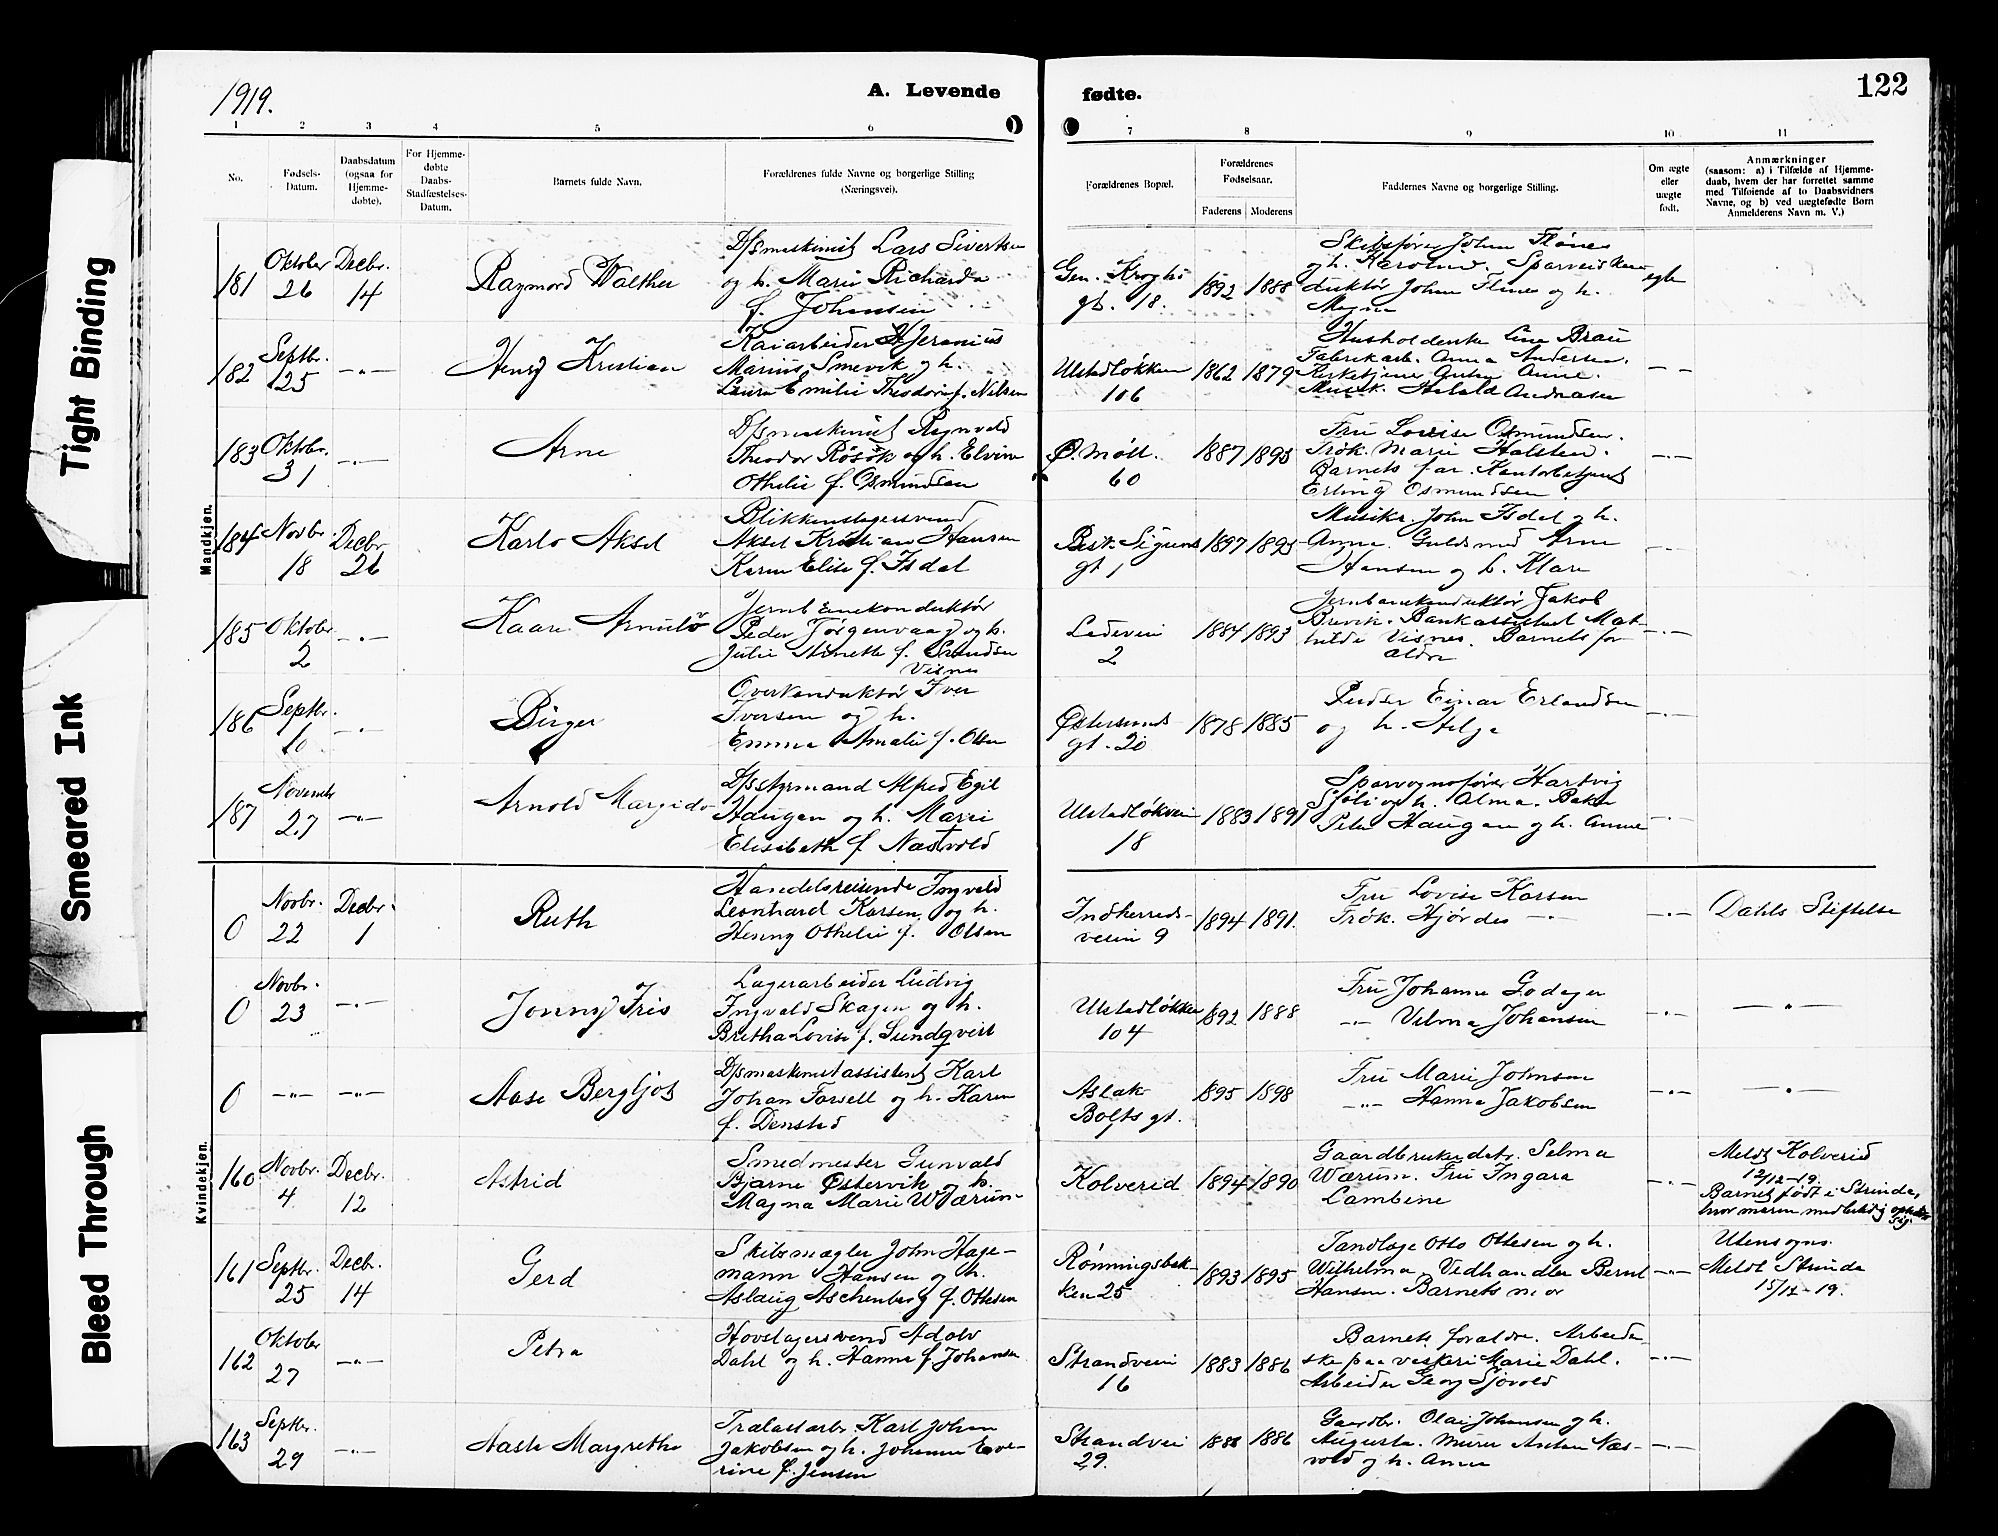 1919.
A. Levende
fødte.
122
Tight Binding
Smeared Ink
Bleed Through
1 2 3 4 5 6 7 8 9 10 11
No.
Fødsels-
Datum.
Daabsdatum
(ogsaa for
Hjemme-
døbte).
For Hjemme-
døbte
Daabs-
Stadfæstelses-
Datum.
Barnets fulde Navn.
Forældrenes fulde Navne og borgerlige Stilling
(Næringsvei).
Forældrenes Bopæl.
Forældrenes
Fødselsaar.
Faderens Moderens
Faddernes Navne og borgerlige Stilling.
Om ægte
eller
uægte
født.
Anmærkninger
(saasom: a) i Tilfælde af Hjemme-
daab, hvem der har forrettet samme
med Tilføiende af to Daabsvidners
Navne, og b) ved uægtefødte Børn
Anmelderens Navn m. V.)
Mandkjøn.
181
Oktober
26
Decbr.
14
Raymond Walther
D/smaskinist Lars Sivertsen
og h. Marie Richarda
f. Johansen
Gen. Kroghs
gt. 18.
1892 1888
Skibsfører Johan Flønes
og h. Karoline. Sporveiskon-
duktør Johan Flønes og h.
Magna
egte
182
Septbr.
25
-"-
Henry Kristian
Kaiarbeider Hjeronius
Marius Smevik og h.
Laura Emilie Theodora f. Nilsen
Ulstadløkken
106
1862 1879
Husholderske Line Brau
Fabrikarb. Anna Andersen.
Kirketjener Anton Aune.
Musik. Harald Andreasen
-"-
183
Oktobr.
31
-"-
Arne
D/smaskinist Ragnvald
Theodor Røsok og h. Elvine
Othelie f. Osmundsen
Ø. Møll.
60
1887 1895
Fru Lovise Osmundsen.
Frøk. Marie Halsten.
Barnets far. Kontorbetjent
Erling Osmundsen.
-"-
184
Novbr.
18
Decbr.
26
Karlo Aksel
Blikkenslagersvend
Aksel Kristian Hansen
Karen Elise f. Isdal
Bisk. Sigurds
gt 1
1897 1895
Musikr. John Isdal og h.
Anna. Guldsmed Arne
Hansen og h. Klara
-"-
185
Oktobr
2
-"-
Kaare Arnulv
Jernbanekonduktør
Peder Jørgenvaag og h.
Julie Anette f. Knudsen
Visnes
Ladeveien
2
1884 1893
Jernbanekonduktør Jakob
Brevik. Bankassistent Mat-
hilde Visnes. Barnets for-
ældre
-"-
186
Septbr.
10
-"-
Birger
Overkonduktør Iver
Iversen og h.
Emma Amalie f. Olsen
Østersunds
gt. 20
1878 1885
Pudser Einar Erlandsen
og h. Helga
-"-
187
Novembr
27
-"-
Arnold Margido
D/sstyrmand Alfred Egil
Haugen og h. Marie
Elisabeth f. Næsvold
Ulstadløkvei
18
1883 1891
Sporvognsfører Hartvig
Sjøli og h. Alma. Baker
Peter Haugan og h. Anna
-"-
Kvindekjøn.
0
Novbr.
22
Decbr.
1
Ruth
Handelsreisende Ingvald
Leonhard Karsen og h.
Henny Othelie f. Olsen
Indherreds-
veien 9
1894 1891.
Fru Lovise Karsen
Frøk. Hjørdes -"-
-"-
Dahls Stiftelse
0
Novbr.
23
-"-
Jonny Iris
Lagerarbeider Ludvig
Ingvald Skagen og h.
Bretha Lovise f. Sundqvist
Ulstadløkken
104
1892 1888
Fru Johanna Godager
-"- Vilma Johansen
-"-
-"-
0
-"-
-"-
Aase Bergljot
D/smaskinistassistent Karl
Johan Forsell og h. Karen
f. Denstad
Aslak
Bolts gt.
1895 1898
Fru Marie Johnsen
-"- Hanna Jakobsen
-"-
-"-
160
Novbr.
4
Decbr.
12
Astrid
Smedmester Gunvald
Bjarne Østervik og h.
Magna Marie Wærum
Kolvereid
1894 1890
Gaardbrukerdatr. Selma
Wærum. Fru Ingara
Lambine
-"-
Meldt Kolvereid
12/12-19.
Barnet født i Strinda,
hvor moren midlertidig opholder
sig.
161
Septbr.
25
Decbr.
14
Gerd
Skibsmægler John Hage-
mann Hansen og h.
Aslaug Aschenberg f. Ottesen
Rønningsbak-
ken 25
1893 1895
Tandlæge Otto Ottesen og h.
Wilhelma. Vedhandler Bernt
Hansen. Barnets mor
-"-
Utensogns.
Meldt Strinda
15/12-19.
162
Oktober
27
-"-
Petra
Hovslagersvend Adolv
Dahl og h. Hanna f. Johansen
Strandveien
16
1883 1886
Barnets forældre. Arbeider-
ske paa vaskeri Marie Dahl.
Arbeider Georg Sjøvold
-"-
163
Septbr.
29
-"-
Aasta Margrethe
Trælastarb. Karl Johan
Jakobsen og h. Johanna Eve-
rine f. Jensen
Strandvei
29.
1888 1886
Gaardbr. Olai Johansen og h.
Augusta. Murer Anton Næs-
vold og h. Anna
-"-